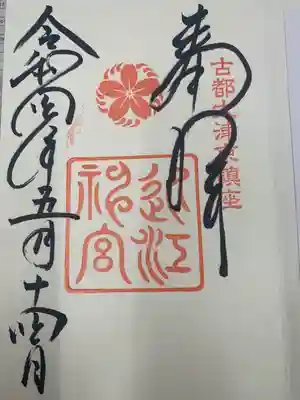 古都大津京鎮座
奉拝
近江
神宮
令和四年五月十四日